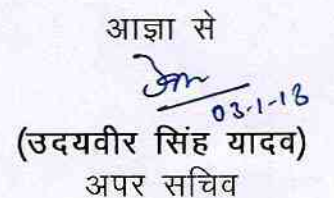 आज्ञा से
03-1-18
(उदयवीर सिंह यादव)
अपर सचिव